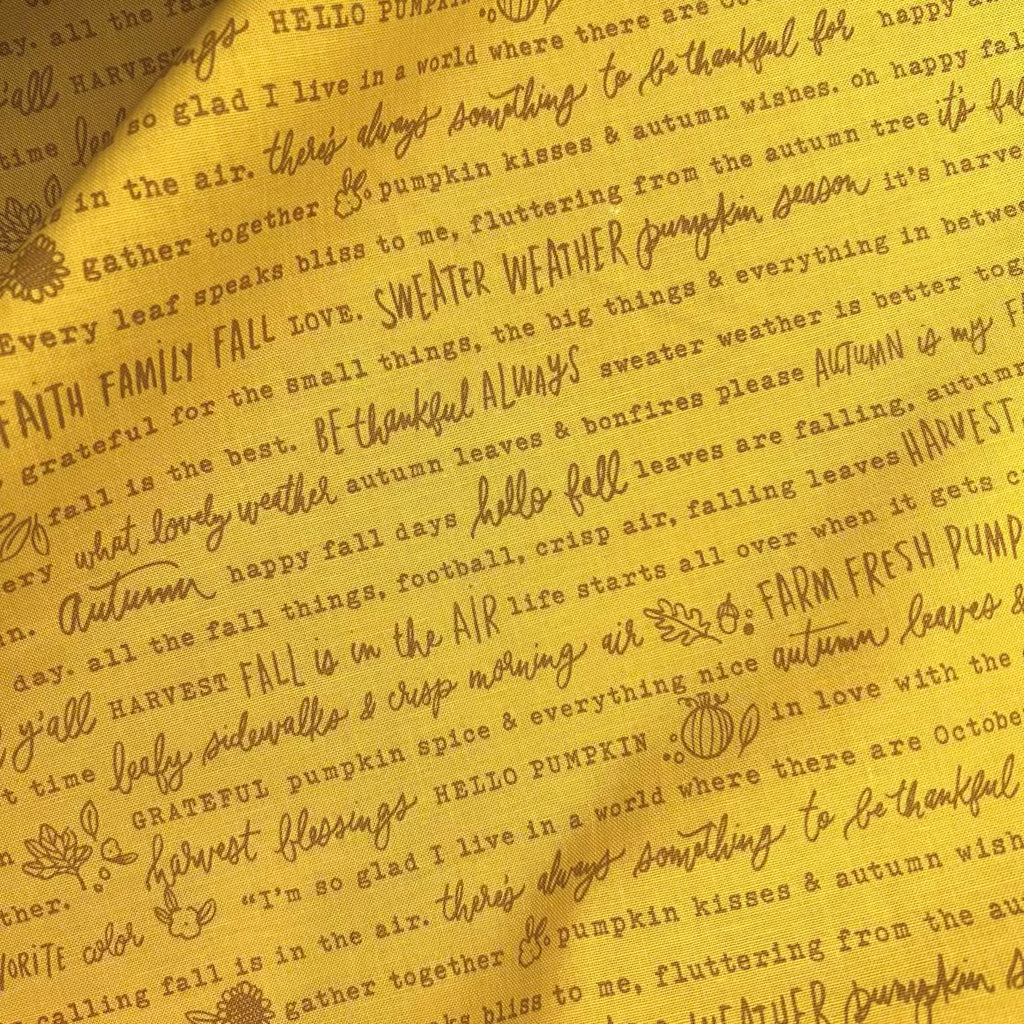 HELLO PUMPKIN
ay. all the fal
y'all HARVEST
so glad I live in a world where there are
happy
time leaf
in the air. there's always something to be thankful for
gather together pumpkin kisses & autumn wishes. oh happy fal
Every leaf speaks bliss to me, fluttering from the autumn tree it's fal
FAITH FAMILY FALL LOVE. SWEATER WEATHER pumpkin season it's harve
grateful for the small things, the big things & everything in betwee
fall is the best. BE thankful ALWAYS sweater weather is better tog
ery what lovely weather autumn leaves & bonfires please AUTUMN is my F
n. autumn happy fall days hello fall leaves are falling, autumn
day. all the fall things, football, crisp air, falling leaves HARVEST
y'all HARVEST FALL is in the AIR life starts all over when it gets c
t time leafy sidewalks & crisp morning air FARM FRESH PUMP
n GRATEFUL pumpkin spice & everything nice autumn leaves &
harvest blessings HELLO PUMPKIN in love with the
ther. "I'm so glad I live in a world where there are Octobe
VORITE color
calling fall is in the air. there's always something to be thankful
gather together pumpkin kisses & autumn wish
ks bliss to me, fluttering from the au
WEATHER pumpkin s